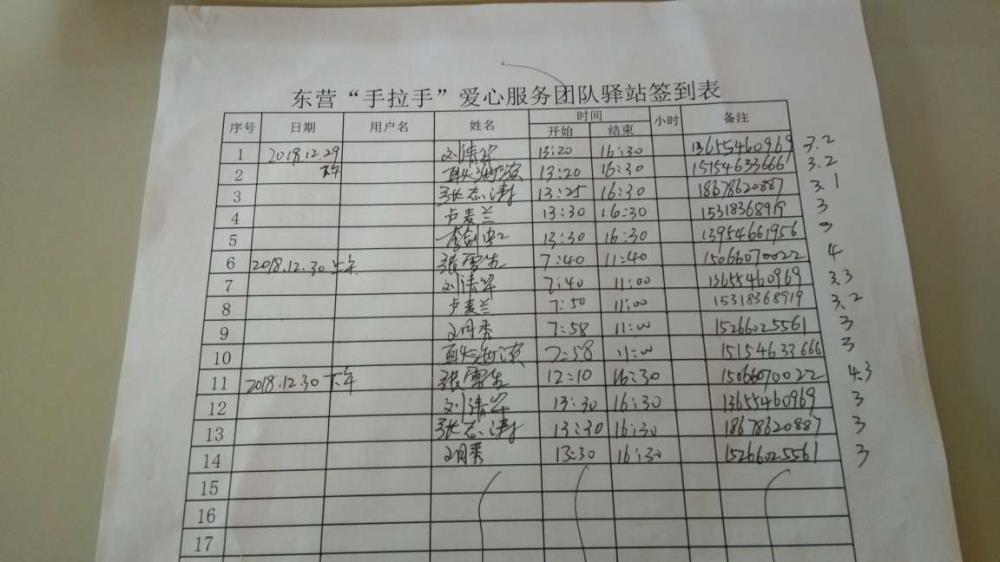 东营“手拉手”爱心服务团队驿站签到表
序号 日期 用户名 姓名 时间 小时 备注
开始 结束
1 2018.12.29 刘清华 13:20 16:30 13655460969 3.2
2 下午 13:20 16:30 15154633666 3.2
3 张志涛 13:25 16:30 18678620887 3.1
4 卢麦兰 13:30 16:30 15318368919 3
5 13:30 16:30 13954661956 3
6 2018.12.30 上午 张雪生 7:40 11:40 15066070022 4
7 刘清华 7:40 11:00 13655460969 3.3
8 卢麦兰 7:50 11:00 15318368919 3.2
9 7:58 11:00 15266025561 3
10 7:58 11:00 15154633666 3
11 2018.12.30 下午 张雪生 12:10 16:30 15066070022 4.3
12 刘清华 13:30 16:30 13655460969 3
13 张志涛 13:30 16:30 18678620887 3
14 13:30 16:30 15266025561 3
15
16
17